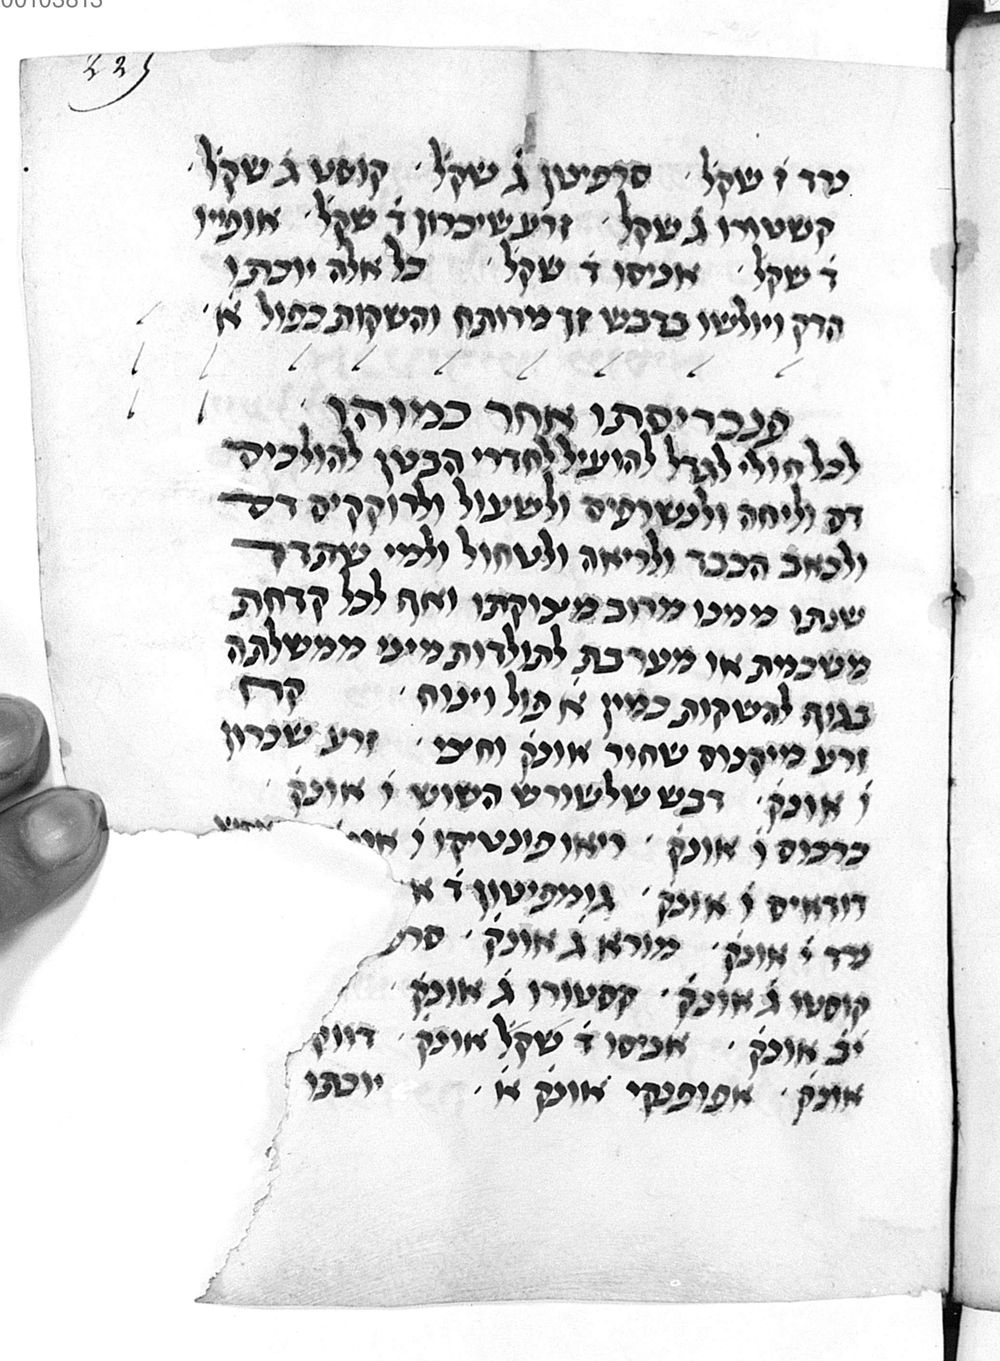 00103813
225
נרד ז֗ שקל֗ סרפיטון ג֗ שקל֗ קוסט ג֗ שקל֗
קשטורו ג֗ שקל זרע שיכרון ד֗ שקל֗ אופייו
ד֗ שקל֗ אניסו ד֗ שקל֗ כל אלה יוכתו
הדק ויולשו בדבש זך מרותח והשקות כפול א֗
פנכריסתו אחר כמוהו
לכל חולי לגדל להועיל לחדרי הבטן להולכים
דם וליחה ולנשרפים ולשעול ולרוקקים דם
ולכאב הכבד ולריאה ולטחול ולמי שתדד
שנתו ממנו מרוב מצוקתו ואף לכל קדחת
משכמת או מערבת לתולדות מיני ממשלתה
בגוף להשקות כמין א֗ פול וינוח קרח
זרע מיקנוס שחור אונק֗ וחצי זרע שכרון
ו֗ אונק֗ דבש שלשורש השוש ו֗ אונק֗
כרכוס ו֗ אונק֗ ריאו פונטיקו ו֗
דודאים ו֗ אונק֗ גומפיטון ד֗ א
נרד י֗ אונק֗ מורא ג֗ אונק֗ סרפ
קוסטו ג֗ אונק֗ קסטורו ג֗ אונק֗
י֗ב֗ אונק֗ אניסו ד֗ שקל֗ אונק֗ דווק
אונק֗ אפופנקי אונק֗ א֗ יוכתו